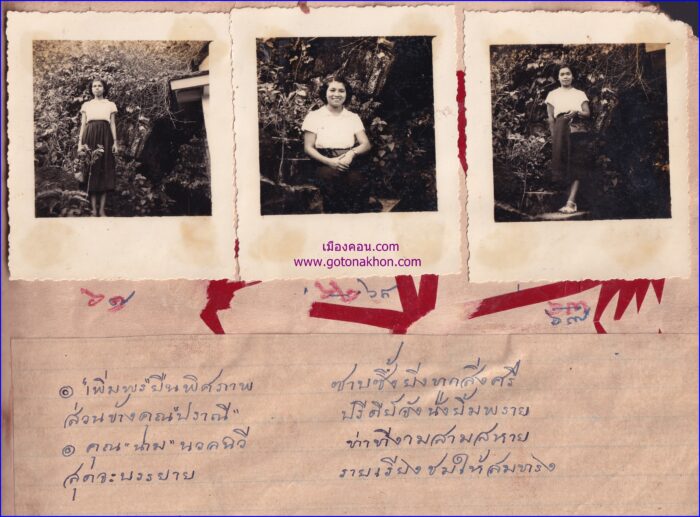 เมืองคอน.com
www.gotonakhon.com
๖๗
๖๘
๖๗
๑ "เพิ่มพร" ยืนพิศภาพ ซาบซึ้งยิ่งทุกสิ่งศรี
ส่วนข้างคุณ "ปราณี" ปรีดียังนั่งยิ้มพราย
๑ คุณ "น่าม" นวลฉวี ท่าทีงามสามสหาย
สุดจะบรรยาย รายเรียงชมให้สมทรง